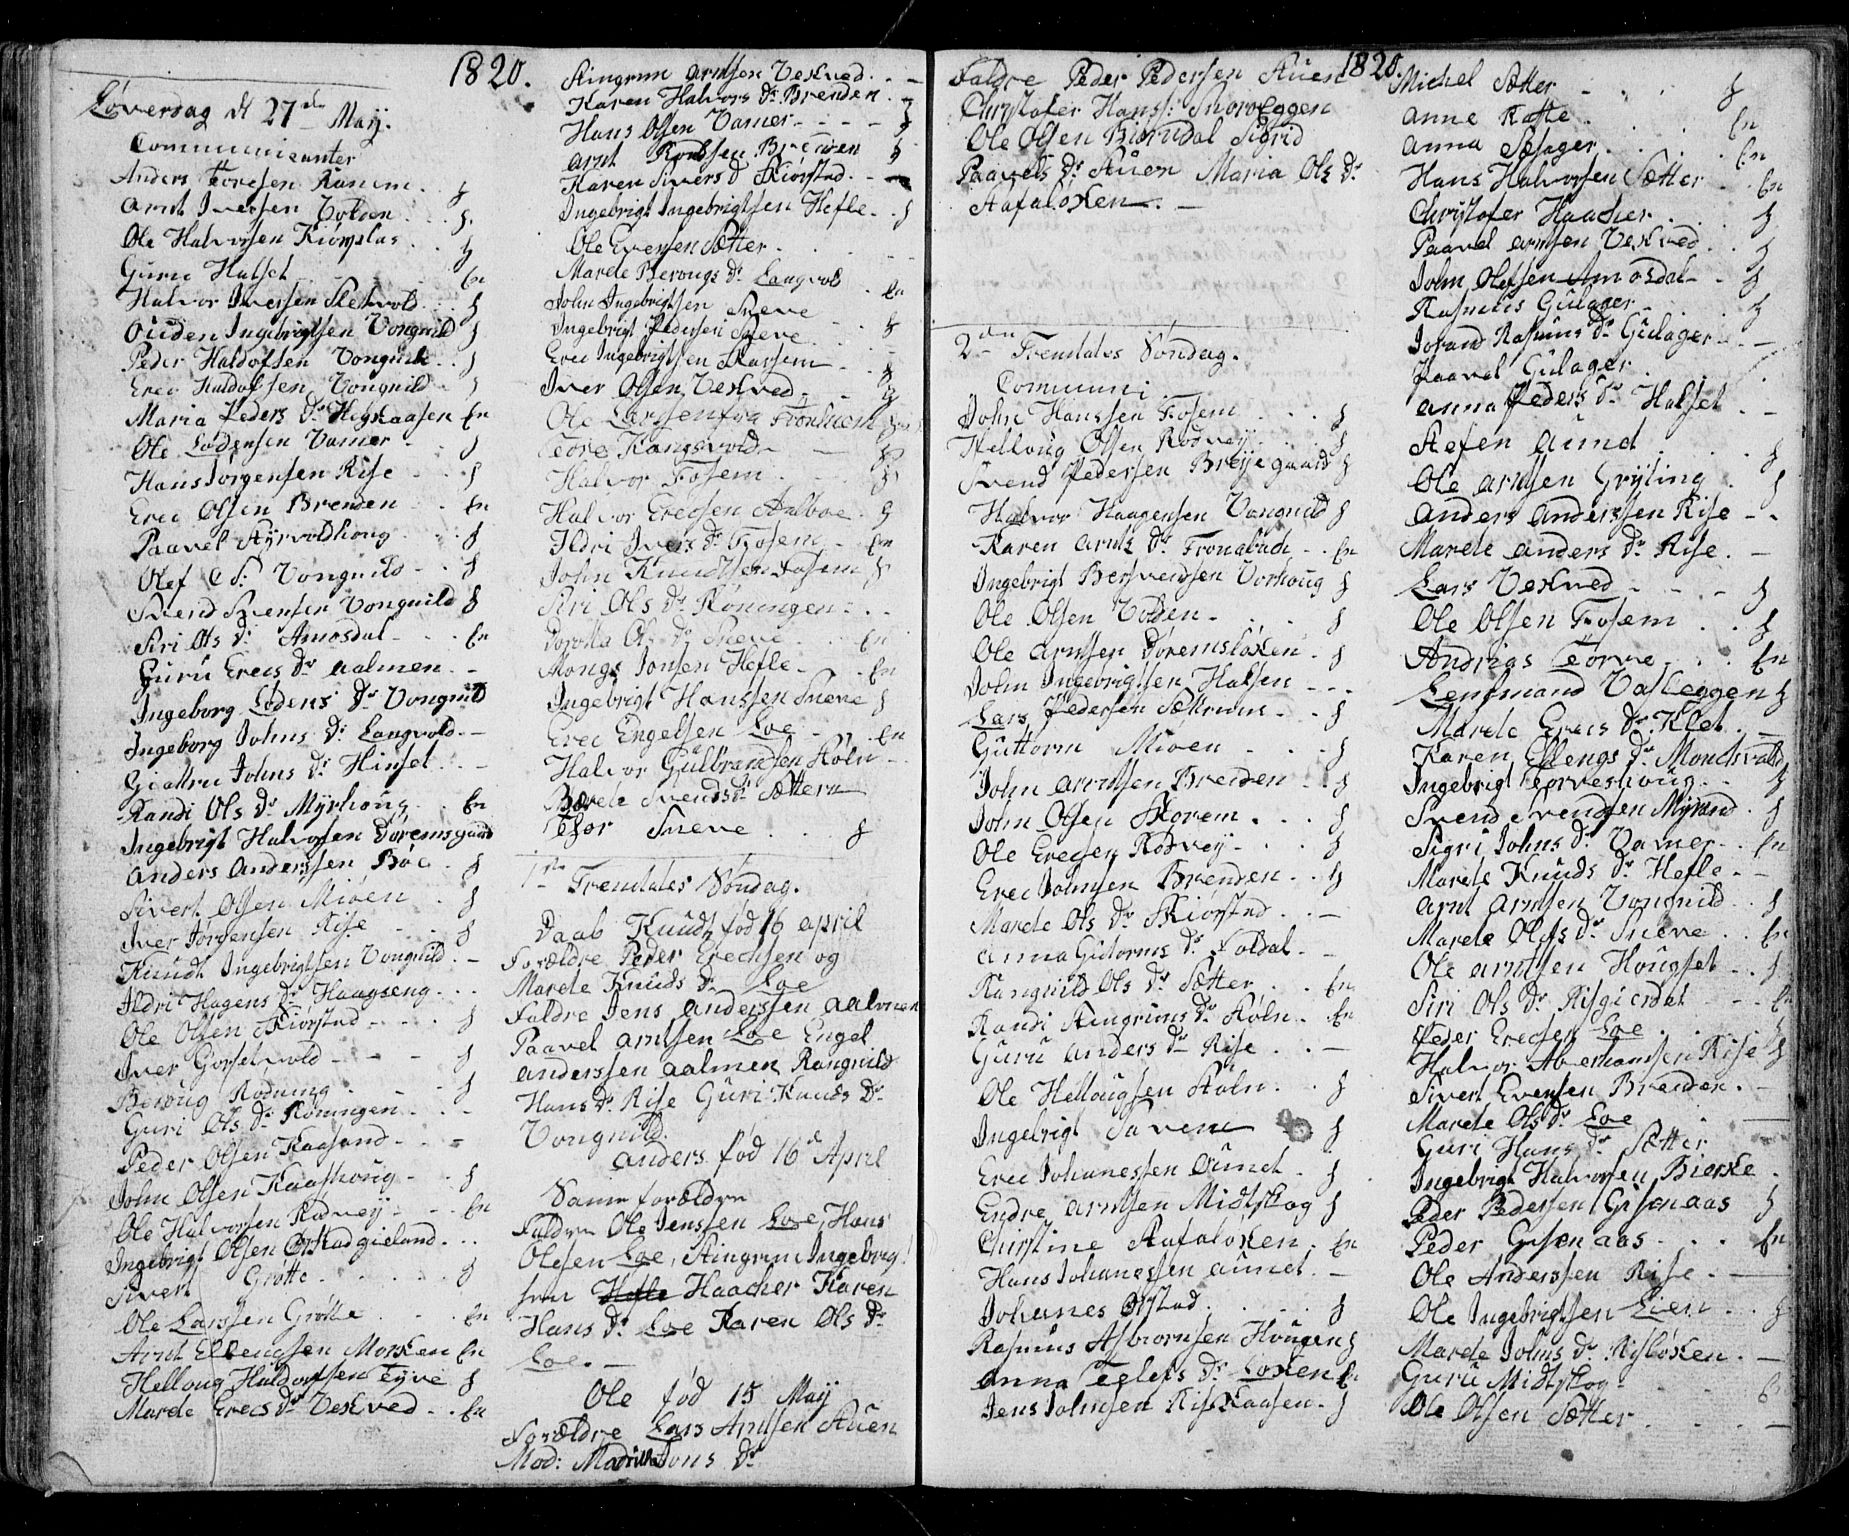 1820.
Löverdag d 27de Maij.
Communicanter
Anders Toresen Ranem. 2
Arnt Iversen Volden . . 2.
Ole Halvorsen Kiörsplas . . 2
Guru Halset - - - En
Halvor Iversen Sletvold . . 2
Ouden Ingebrigtsen Vongnild 2
Peder Haldorsen Vongnild . . 2
Erec Haldorsen Vongnild - 2
Maria Peders Dr Hegskaasen En
Ole Lodensen Vamer - . 2
Hans Jörgensen Rise - . . 2
Erec Olsen Brenden . . En
Paavel Hyrvoldhoug . . 2
Olef Vongnild - . 2
Svend Svensen Vongnild 2
Siri Ols Dr Amosdal - . . En
Guru Erecs Dr Aalmen. -
Ingeborg Lodens Dr Vongnild
Ingeborg Johns Dr Langvold. -
Giettru Johns Dr Hinset . . -
Randi Ols Dr Myrhoug . . En
Ingebrigt Halvorsen Döremsgaard
Anders Anderssen Böe . 2
Sivert Olsen Mioen . 2
Iver Jörgensen Rise - . . 2
Knudt Ingebrigtsen Vongnild . -
Ildri Hagens Dr Haagseng . . .
Ole Olsen Skiörstad - . . . 2
Iver Gorsetvold - - - 2
Beroug Rodning . . - . 2
Guri Ols Dr Röningen . . . -
Peder Olsen Kaasend - . . =
John Olsen Kaashoug - . 2
Ole Halvorsen Rödvey - . . En
Ingebrigt Olsen Ørstadgieland . . .
Sivert Grötte . . . . 2
Ole Larssen Grötte . . . En
Arnt Ellengsen Morken En
Helloug Haldorsen Tyve 2
Marete Erecs Dr Vekved . . En
Stingrim Arntsen Vekved . . -
Karen Halvors Dr Brenden . 2
Hans Olsen Vamer - - - - 2
Arnt Brenden 2
Karen Sivers D Skiörstad . -
Ingebrigt Ingebrigtsen Hefle . . 2
Ole Evensen Sætter . . . .
Marete Berougs Dr Langvold . En
John Ingebrigtsen Sneve
Ingebrigt Pedersen Sneve . - 2
Erec Ingebrigtsen Skarsem - . 2
Iver Olsen Vekved - . - 2
Ole Larssen fra Tronhiem 2
Tore Kangsvold - 2
Halvor Fosem . . . 2
Halvor Erecsen Aalboe . 2
Ildri Ivers Dr Fosem - En
John Knudtsen Fosem 2
Siri Ols Dr Röningen - . .
Dorotea Ols Dr Sneve . . En
Mongs Jonsen Hefle - . . En
Ingebrigt Hanssen Sneve 2
Erec Engelsen Loe - . . En
Halvor Gulbrandsen Höln - . .
Marete Svends Dr Sættern
Thor Sneve . . 2
1ste Trenitates Söndag.
Daab Knudt fød 16 april
Forældre Peder Erechsen og
Marete Knuds Dr Loe
Faldre Jens Anderssen Aalmen
Paavel Arntsen Loe Engel
Anderssen Aalmen Rangnild
Hans Dr Rise Guri Knuds Dr
Vongnild.
Anders fød 16de April
Samm forældre
Faldre Ole Jenssen Loe, Hans
Olesen Loe, Stingrim Ingebrig
sen Hefle Haacher Karen
Hans Dr Loe Karen Ols Dr
Loe. -
Ole fød 15 Maij
Forældre Lars Arntsen Stuen
Mod: Jons Dr
1820.
Faldre Peder Pedersen Stuen
Christofer Hans: Snoroeggen
Ole Olsen Biörndal Sigrid
Paavels Dr Stuen Maria Ols Dr
Stafaløken. -
2den Trenitates Söndag.
Communi.
John Hanssen Fosem . . . 2
Helloug Olsen Rödvey . . . 2
Svend Pedersen Breyegaard 2
Halvor Haagensen Vongnild 2
Karen Arnts Dr Tronabach - . En
Ingebrigt Bersvendsen Vorhoug 2
Ole Olsen Volden - . . . 2
Ole Arntsen Döremsløken . 2
John Ingebrigtsen Halsen - - -
Lars Pedersen Sæterness - . 2
Guttorm Mioen - . - . 2
John Arntsen Brenden - . 2
John Olsen Skorem . . . 2
Ole Erecsen Rödvey - . . 2
Erec Johnsen Brenden . . 2
Marete Ols Dr Skiörstad . . -
Anna Gutorms Dr Foldal . -
Rangnild Ols Dr Sætter . . En
Randi Stingrims Dr Höln . . En
Guru Anders Dr Rise . . -
Ole Hellougsen Höln . . 2
Ingebrigt Saven 2
Erec Johanessen Aunet . 2
Endre Arntsen Midtskog 2
Christine Stafaløken . En
Hans Johanessen Aunet . -
Johanes Ørstad . . . . . 2
Rasmus Asbiornsen Hougen 2
Anna Eelefs Dr Loken En
Jens Johnsen Riskaasen . 2
Michel Sætter - . . . 2
Anne Raste . . . . En
Anna Sæsager . . . . En
Hans Halvorsen Sætter . En
Christofer Haacher . . . 2
Paavel Arntsen Vekved . . 2
John Olefsen Amosdal - . 2
Rasmus Gulager . . . . 2
Jorand Rasmus Dr Gulager . . -
Paavel Gulager . . . .
Anna Peders Dr Halset . . -
Stefen Aund . . . . 2
Ole Arntsen Gryting . . 2
Anders Anderssen Rise - .
Marete Anders Dr Rise . -
Lars Vekved - - - - 2
Ole Olsen Fosem . . 2
Andrias Torve . . . En
Lensmand Vasleggen 2
Marete Erecs Dr Klet . . -
Karen Ellengs Dr Monchsvold
Ingebrigt Torveshoug . . 2
Svend Svendsen Myrand . 2
Sigri Johns Dr Vamer . . En
Marete Knuds Dr Hefle - -
Arnt Arntsen Vongnild . . 2
Marete Olefs Dr Sneve . . En
Ole Arntsen Hougset . . 2
Siri Ols Dr Risgierdet - - - En
Peder Erecsen Loe . . . 2
Halvor Aberhamsen Rise 2
Sivert Evensen Brenden . -
Marete Ols Dr Loe . . -
Guri Hans Dr Sætter
Ingebrigt Halvorsen Bierke .
Peder Pedersen Gisenaas 2
Peder Gisenaas . . . En
Ole Anderssen Rise . -
Ole Ingebrigtsen Lien . . 2
Marete Johns Dr Risløken . -
Guru Midtskog - - . -
Ole Olsen Sætter . . . -